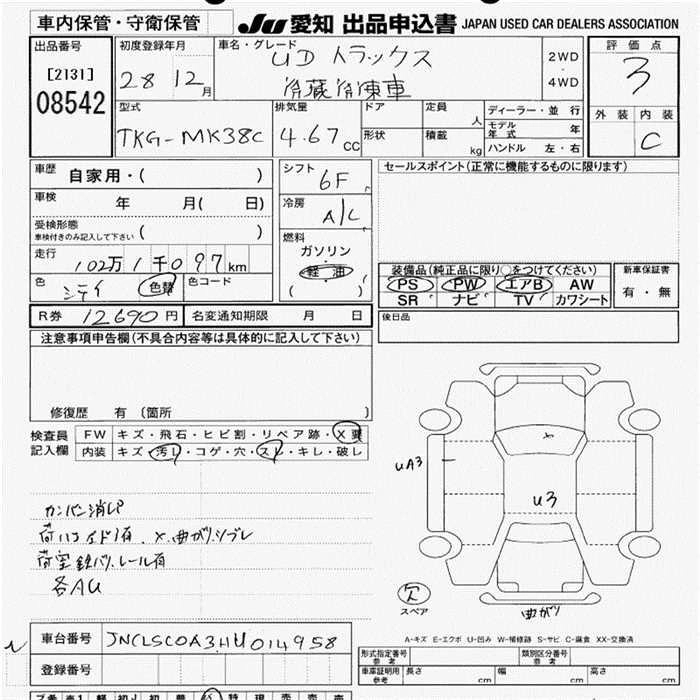 車内保管・守衛保管 JU 愛知 出品申込書 JAPAN USED CAR DEALERS ASSOCIATION
出品番号 初度登録年月 車名・グレード UDトラックス 2WD ・ 4WD 評価点
[2131] 28 12月 冷蔵冷凍車 3
08542 型式 排気量 ドア 定員 人 ディーラー・並行 外装 内装
TKG-MK38C 4.67cc 形状 積載 kg モデル年式 年 C
ハンドル 左・右
車歴 自家用・( ) シフト 6F セールスポイント(正常に機能するものに限ります)
車検 年 月( 日) 冷房 A/C
受検形態 ( )
車検付きのみ記入して下さい 燃料
走行 102万1千097km ガソリン 装備品(純正品に限り○をつけてください) 新車保証書
色 色替 色コード 軽油 PS PW エアB AW 有・無
( ) SR ナビ TV カワシート
R券 12690円 名変通知期限 月 日 後日品
注意事項申告欄(不具合内容等は具体的に記入して下さい)
修復歴 有(箇所 )
検査員 FW キズ・飛石・ヒビ割・リペア跡・X要
記入欄 内装 キズ・汚レ・コゲ・穴・スレ・キレ・破レ
UA3
U3
カンバン消し
荷室鉄バリ、レール有
各AU
欠
スペア 曲がり
A-キズ E-エクボ U-凹み W-補修跡 S-サビ C-腐食 XX-交換済
車台番号 JNCLSC0A3HU014958
登録番号 形式指定番号 参考 類別区分番号 参考
車庫証明用 参考 長さ cm 幅 cm 高さ cm